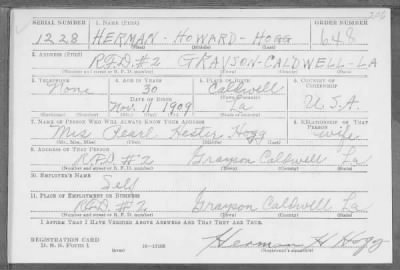 206
SERIAL NUMBER 1. NAME (Print) ORDER NUMBER
1228 HERMAN - HOWARD - HOGG 648
(First) (Middle) (Last)
2. ADDRESS (Print)
R.F.D. #2 GRAYSON - CALDWELL - LA
(Number and street or R. F. D. number) (Town) (County) (State)
3. TELEPHONE 4. AGE IN YEARS 5. PLACE OF BIRTH 6. COUNTRY OF CITIZENSHIP
None 30 Caldwell
DATE OF BIRTH (Town or county)
Nov. 11 1909 La U.S.A.
(Mo.) (Day) (Yr.) (State or country)
7. NAME OF PERSON WHO WILL ALWAYS KNOW YOUR ADDRESS 8. RELATIONSHIP OF THAT PERSON
Mrs Pearl Hester Hogg wife
(Mr., Mrs., Miss) (First) (Middle) (Last)
9. ADDRESS OF THAT PERSON
R.F.D. #2 Grayson Caldwell La
(Number and street or R. F. D. number) (Town) (County) (State)
10. EMPLOYER'S NAME
Self
11. PLACE OF EMPLOYMENT OR BUSINESS
R.F.D. #2 Grayson Caldwell La
(Number and street or R. F. D. number) (Town) (County) (State)
I AFFIRM THAT I HAVE VERIFIED ABOVE ANSWERS AND THAT THEY ARE TRUE.
REGISTRATION CARD
D. S. S. Form 1 (over) 16-17105 Herman H Hogg
(Registrant's signature)